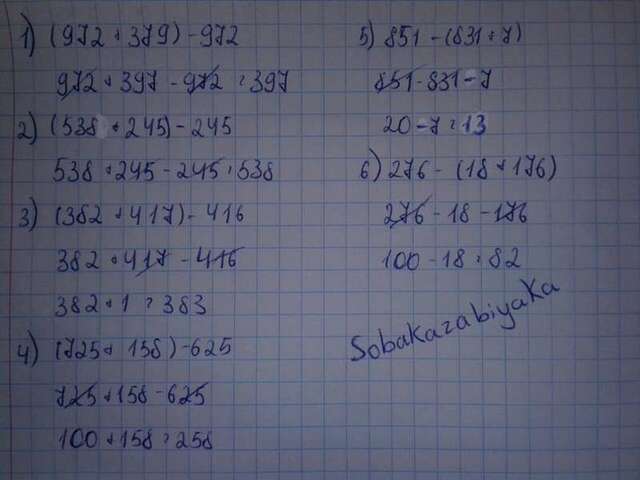 1) (972 + 379) - 972
972 + 397 - 972 = 397
2) (538 + 245) - 245
538 + 245 - 245 = 538
3) (382 + 417) - 416
382 + 417 - 416
382 + 1 = 383
4) (725 + 158) - 625
725 + 158 - 625
100 + 158 = 258
5) 851 - (831 + 7)
851 - 831 - 7
20 - 7 = 13
6) 276 - (18 + 176)
276 - 18 - 176
100 - 18 = 82
Sobakazabiyaka